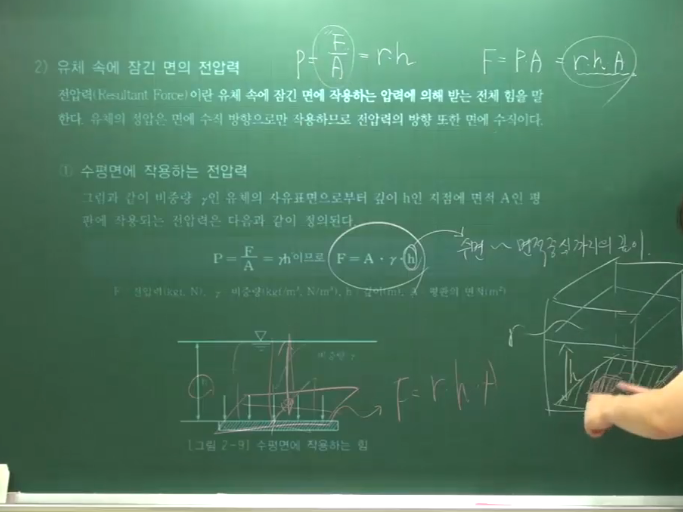 P = F/A = r·h
F = P·A = r·h·A
2) 유체 속에 잠긴 면의 전압력
전압력(Resultant Force)이란 유체 속에 잠긴 면에 작용하는 압력에 의해 받는 전체 힘을 말
한다. 유체의 정압은 면에 수직 방향으로만 작용하므로 전압력의 방향 또한 면에 수직이다.
① 수평면에 작용하는 전압력
그림과 같이 비중량 γ인 유체의 자유표면으로부터 깊이 h인 지점에 면적 A인 평
판에 작용되는 전압력은 다음과 같이 정의된다
P = F/A = γh이므로 F = A · γ · h
수면 ~ 면적중심까지의 깊이.
F : 전압력(kgf, N), γ : 비중량(kgf/m³, N/m³), h : 깊이(m), A : 평판의 면적(m²)
r
h
비중량 γ
F = r·h·A
[그림 2-9] 수평면에 작용하는 힘